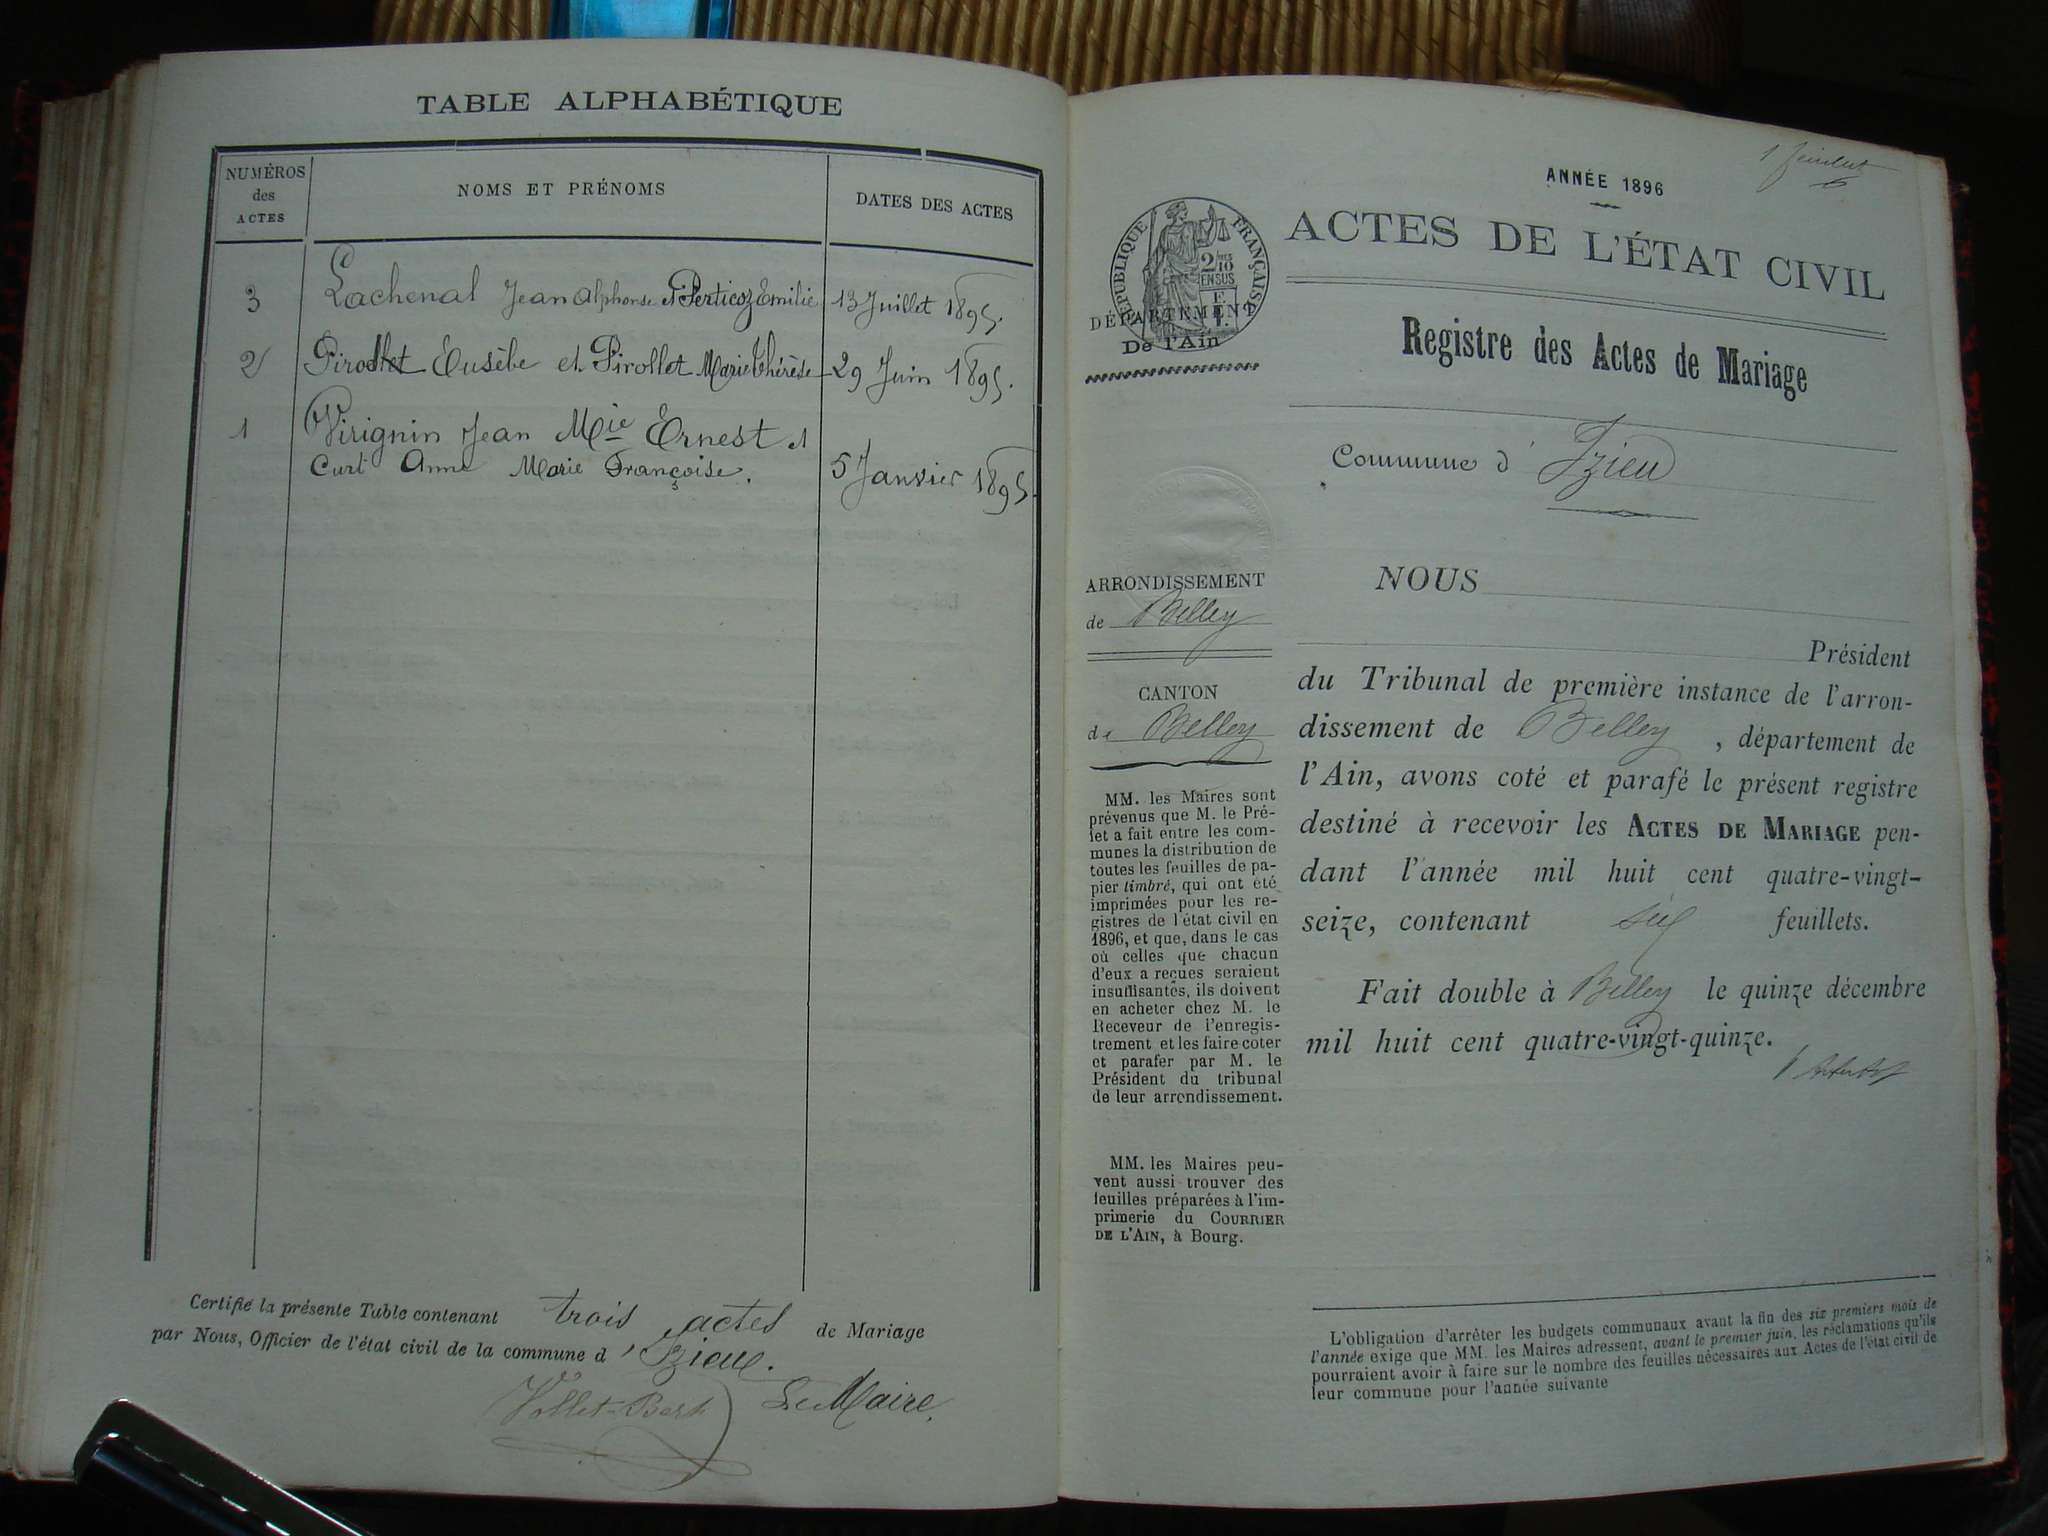 TABLE ALPHABÉTIQUE
NUMÉROS
des
ACTES
NOMS ET PRÉNOMS
DATES DES ACTES
3 Lachenal Jean alphonse et Perticoz Emilie 13 Juillet 1895.
2 Pirollet Eusèbe et Pirollet Marie thérèse 29 Juin 1895.
1 Virignin Jean Mie Ernest et
Curt Anne Marie Françoise. 5 Janvier 1895.
Certifié la présente Table contenant trois actes de Mariage
par Nous, Officier de l'état civil de la commune d'Izieu.
Le Maire,
1 feuillet
6
ANNÉE 1896
ACTES DE L'ÉTAT CIVIL
RÉPUBLIQUE FRANÇAISE
2/10
EN SUS
DÉPARTEMENT
De l'Ain
Registre des Actes de Mariage
Commune d'Izieu
ARRONDISSEMENT
de Belley
CANTON
de Belley
MM. les Maires sont
prévenus que M. le Pré-
fet a fait entre les com-
munes la distribution de
toutes les feuilles de pa-
pier timbré, qui ont été
imprimées pour les re-
gistres de l'état civil en
1896, et que, dans le cas
où celles que chacun
d'eux a reçues seraient
insuffisantes, ils doivent
en acheter chez M. le
Receveur de l'enregis-
trement et les faire coter
et parafer par M. le
Président du tribunal
de leur arrondissement.
MM. les Maires peu-
vent aussi trouver des
feuilles préparées à l'im-
primerie du COURRIER
DE L'AIN, à Bourg.
NOUS
Président
du Tribunal de première instance de l'arron-
dissement de Belley, département de
l'Ain, avons coté et parafé le présent registre
destiné à recevoir les ACTES DE MARIAGE pen-
dant l'année mil huit cent quatre-vingt-
seize, contenant six feuillets.
Fait double à Belley le quinze décembre
mil huit cent quatre-vingt-quinze.
L'obligation d'arrêter les budgets communaux avant la fin des six premiers mois de
l'année exige que MM. les Maires adressent, avant le premier juin, les réclamations qu'ils
pourraient avoir à faire sur le nombre des feuilles nécessaires aux Actes de l'état civil de
leur commune pour l'année suivante